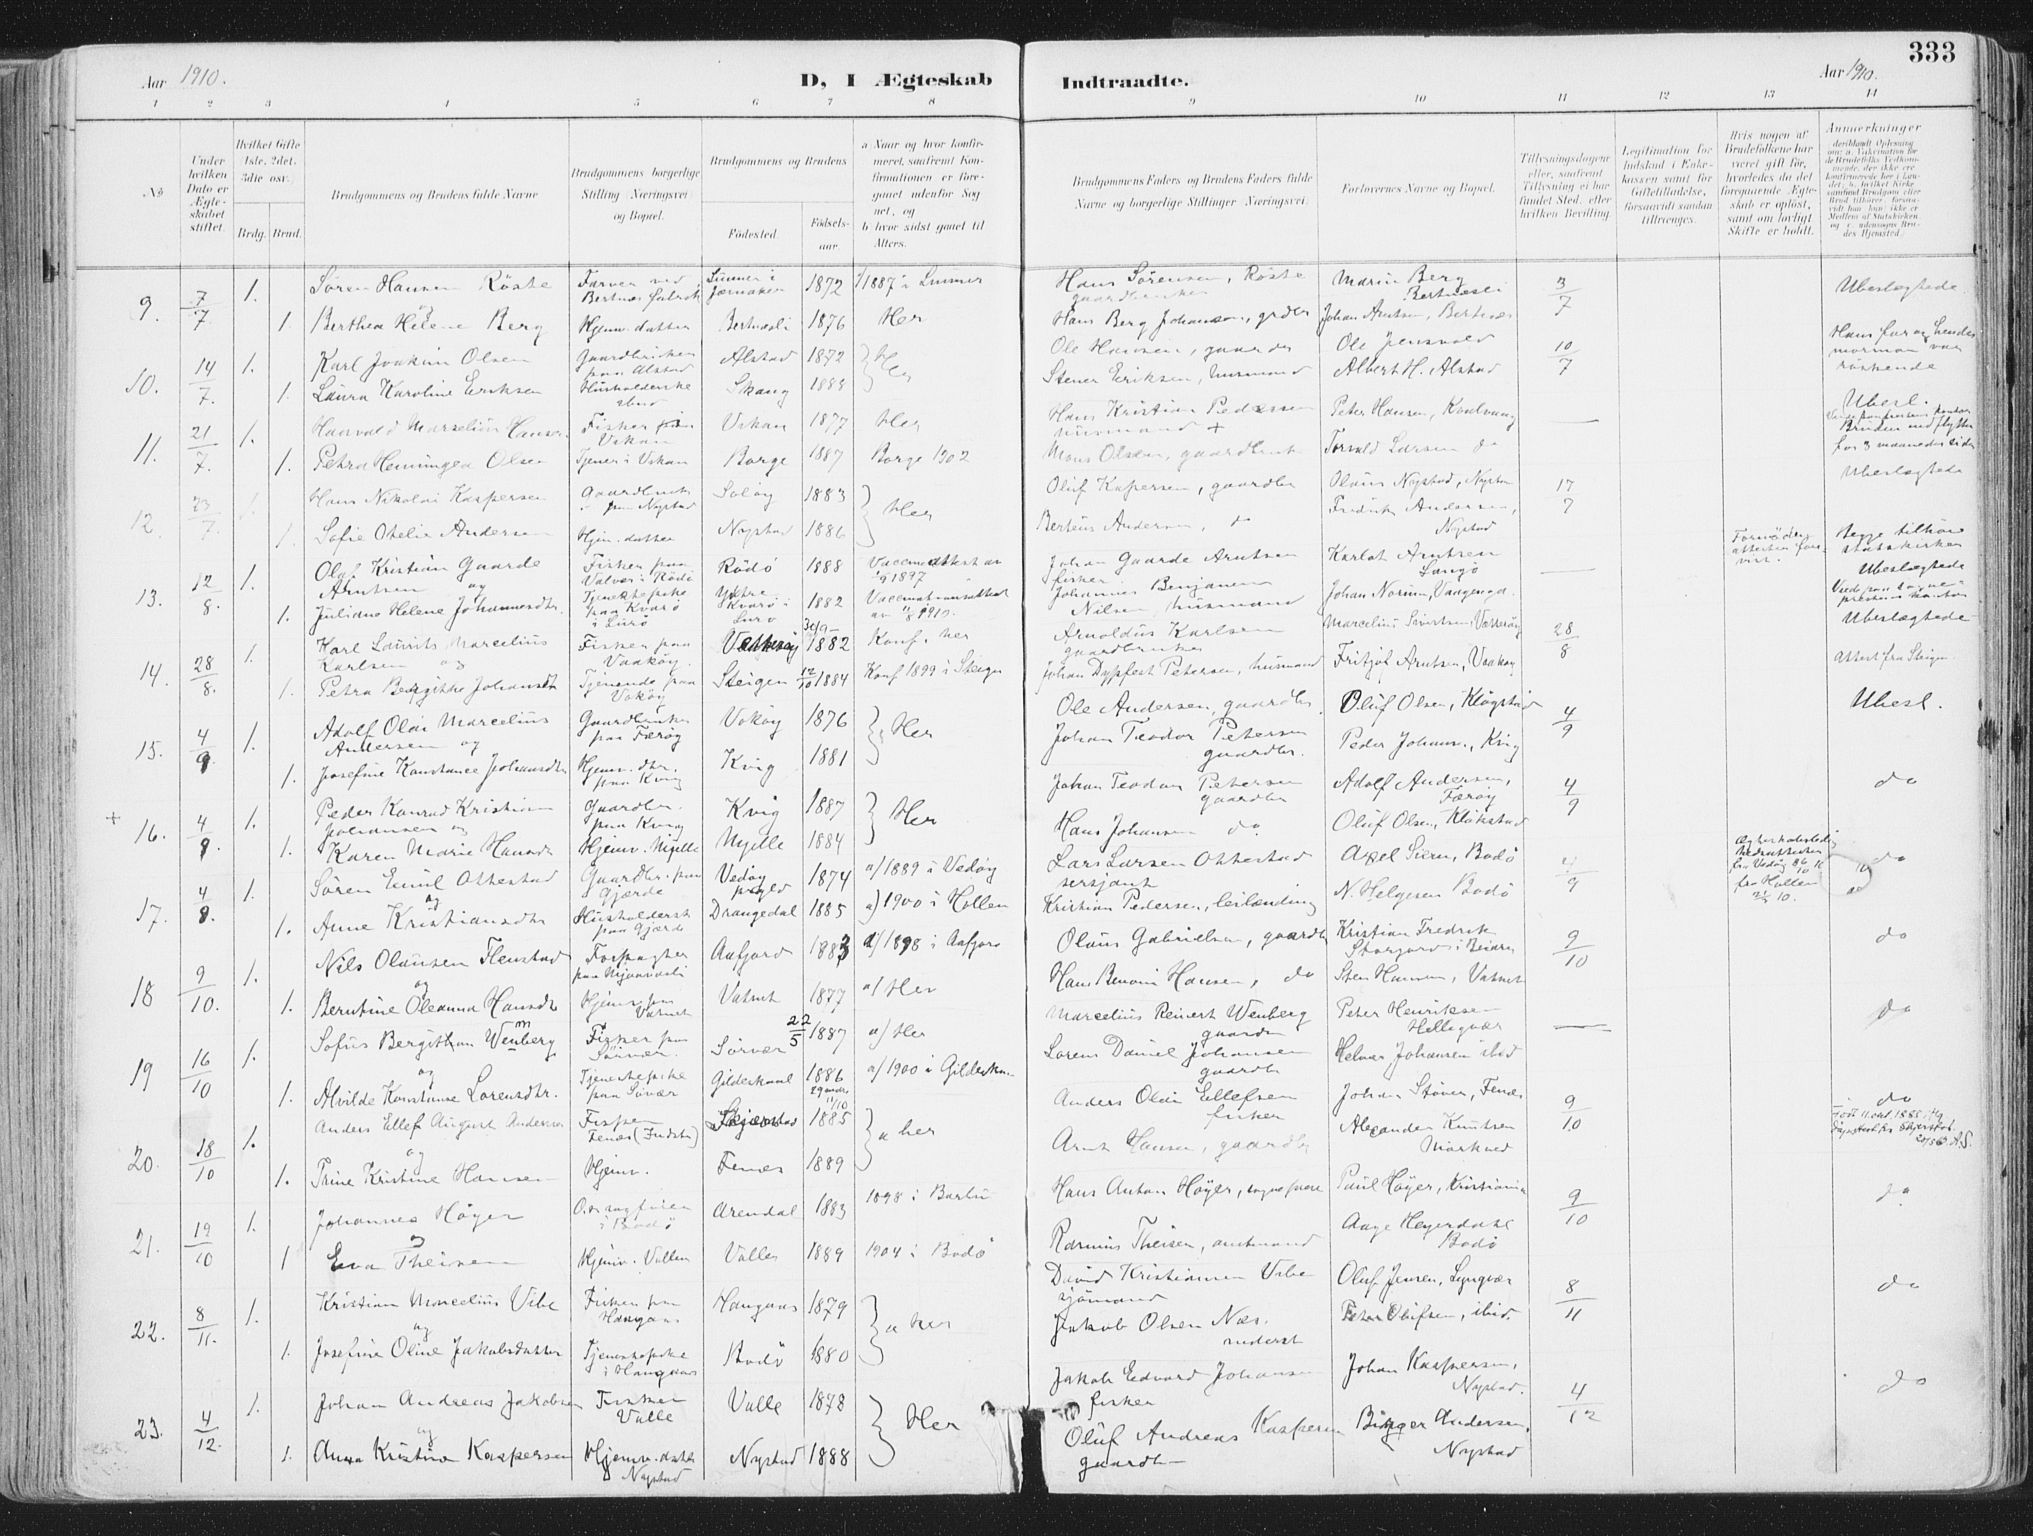 333
Aar 1910.
D, I Ægteskab Indtraadte.
Aar 1910.
1 2 3 4 5 6 7 8 9 10 11 12 13 14
No
Under hvilken Dato er Ægteskabet stiftet.
Hvilket Gifte 1ste, 2det, 3dte osv.
Brdg. Brud.
Brudgommens og Brudens fulde Navne
Brudgommens borgerlige Stilling Næringsvei og Bopæl.
Brudgommens og Brudens
Fødested.
Fødselsaar.
a Naar og hvor konfirmeret, saafremt Konfirmationen er foregaaet udenfor Sognet, og
b hvor sidst gaaet til Alters.
Brudgommens Faders og Brudens Faders fulde Navne og borgerlige Stillinger Næringsvei
Forlovernes Navne og Bopæl.
Tillysningsdagene eller, saafremt Tillysning ei har fundet Sted, efter hvilken Bevilling.
Legitimation for Indskud i Enkekassen samt for Giftetilladelse, forsaavidt saadan tiltrænges.
Hvis nogen af Brudefolkene har været gift før, hvorledes da det foregaaende Ægteskab er opløst, samt om lovligt Skifte er holdt.
Anmerkninger
9. 7/7 1. Søren Hansen Röste Farver ved Bertnæs fabrik Lunner i Jævnaker 1872 1/1887 i Lunner Hans Sörensen, Röste gaardbruker Marin Berg Bertnesli 3/7 Ubeslægtede
og
1. Berthea Helene Berg Hjemv. datter Bertnesli 1876 Her Hans Berg Johansen, grdbr Johan Arntsen, Bertnes
10. 14/7. 1. Karl Joakim Olsen Gaardbruker paa Alstad Alstad 1872 Her Ole Hansen, gaardbr Ole Jensvold 10/7 Hans far og hendes mormor var söskende
1. Laura Karoline Eriksen Husholderske ibid Skaug 1883 Stener Eriksen, husmand Albert H. Alstad
11. 21/7. 1. Haavald Marselius Hansen Fisker Vikan Vikan 1877 Her Hans Kristian Pedersen husmand + Peter Hansen, Kvalvaag — Ubesl.
1. Petra Hemingea Olsen Tjener i Vikan Borge 1887 Borge 1902 Mons Olsen, gaardbruk Torvald Larsen do Bruden indflyttet for 3 maaneder siden
12. 23/7. 1. Hans Nikolai Kaspersen Gaardbruker paa Nystad Soløy 1883 Her Oluf Kaspersen, gaardbr Olaus Nystad, Nystad 17/7 Ubeslægtede
1. Sofie Otelie Andersen Hjem. datter Nystad 1886 Berteus Andersen, do Fredrik Andersen, Nystad
13. 12/8. 1. Olaf Kristian Gaarde Arntsen Fisker paa Valvær i Rödö Rödö 1888 Vaccinattest av 1/9 1897 Johan Gaarde Arntsen fisker Karlot Arntsen Langö — Begge tilhöre statskirken Ubeslægtede
og
1. Juliane Helene Johannesdtr. Tjenestepike paa Kvarö i Lurö Ytre Kvarö i Lurö 1882 Vaccinationsattest av 11/8 1910. Johannes Benjamin Nilsen husmand Johan Norum, Vaagengd.
14. 28/8. 1. Karl Laurits Marcelius Karlsen og Fisker paa Vaaköy. 30/9 1882 Konf. her Arnoldus Karlsen gaardbruker Marcelius Sivertsen, Vatteröy 28/8 Ubeslægtede
1. Petra Bergitte Johansdtr Tjenende paa Vaköy Steigen 12/10 1884 Konf 1899 i Steigen Johan Dyppfest Petersen, husmand Fritjof Arntsen, Vaaköy attest fra Steigen
15. 4/9 1. Adolf Olai Marcelius Andersen og Gaardbruker paa Færöy Vaköy 1876 Her Ole Andersen, gaardbr. Oluf Olsen, Klögstad 4/9 Ubesl.
1. Josefine Konstance Johansdtr Hjemv. dtr. paa Kvig Kvig 1881 Johan Teodor Petersen gaardbr. Peder Johans., Kvig
+ 16. 4/9. 1. Peder Konrad Kristian Johansen og Gaardbr. paa Kvig Kvig 1887 Her Johan Teodor Petersen gaardbr Adolf Andersen, Færöy 4/9 do
1. Karen Marie Hansdtr Hjemv. Mjelle Mjelle 1884 Hans Johansen do. Oluf Olsen, Klökstad
17. 4/9. 1. Sören Emil Ottestad Gaardbr. paa Gjærde Vedöy 1874 a/1889 i Vedöy Lars Larsen Ottestad sersjant Axel Siem, Bodö 4/9 do
og
1. Anne Kristiansdtr Husholdersk paa Gjærde Drangedal 1885 a) 1900 i Hollen Kristian Pedersen, leilænding N. Helgesen Bodö
18 9/10. 1. Nils Olausen Flenstad Aafjord 1883 a/1898 i Aafjord Olaus Gabrielsen, gaardbr Kristian Fredrik Storjord i Beiarn 9/10 do
og
1. Berntine Oleanna Hansdtr Hjemv. paa Vatnet Vatnet 1877 a/ Her Hans Benoni Hansen, do Sten Hansen, Vatnet
19 16/10 1. Sofus Bergithon Wenberg Fisker paa Sörvær. Sörvær 22/5 1887 a/ Her Marcelius Reinert Wenberg gaardm Peter Henriksen Helligvær — do
og
1. Alvilde Konstanse Lorensdtr. Tjenestepike paa Sövær Gildeskaal 1886 a/1900 i Gildeskaal Lorens Daniel Johansen gaardbr Helmer Johansen ibid
20. 18/10 1. Anders Ellef August Andersen Fisker Fenes (Indstr) Skjerstad 11/10 1885 a her Anders Olai Ellefsen fisker Johan Stöver, Fenes 9/10 do
Født 11 okt. 1885 iflg. dåpsattest fra Skjerstad 20/5 63 A.S.
og
1. Trine Kristine Hansen Hjemv. Fenes 1889 Arnt Hansen, gaardbr Alexander Knutsen Mörkved
21. 19/10 1. Johannes Höyer i Bodö Arendal 1883 1898 i Barbu Hans Anton Höyer, sogneprest Paul Höyer, Kristiania 9/10 do
og
1 Eva Theisen Hjemv. Vollen Valle 1889 1904 i Bodö Rasmus Theisen, amtmand Aage Heyerdahl Bodö
22. 8/11. 1. Kristian Marcelius Vibe Fisker paa Haugaas Haugaas 1879 a her David Kristiansen Vibe sjömand Oluf Jensen, Lyngvær 8/11 do
og
1. Josefine Oline Jakobsdatter Tjenestepike i Haugaas Bodö 1880 Jakob Olsen Næs. Peter Olufsen, ibid.
23. 4/12. 1. Johan Andreas Jakobsen Fisker Valle Valle 1878 Her Jakob Edvard Johansen fisker Johan Kaspersen, Nystad. 4/12 do
og
1. Anna Kristine Kaspersen Hjemv. datter Nystad Nystad 1888 Oluf Andreas Kaspersen gaardbr Birger Andersen, Nystad